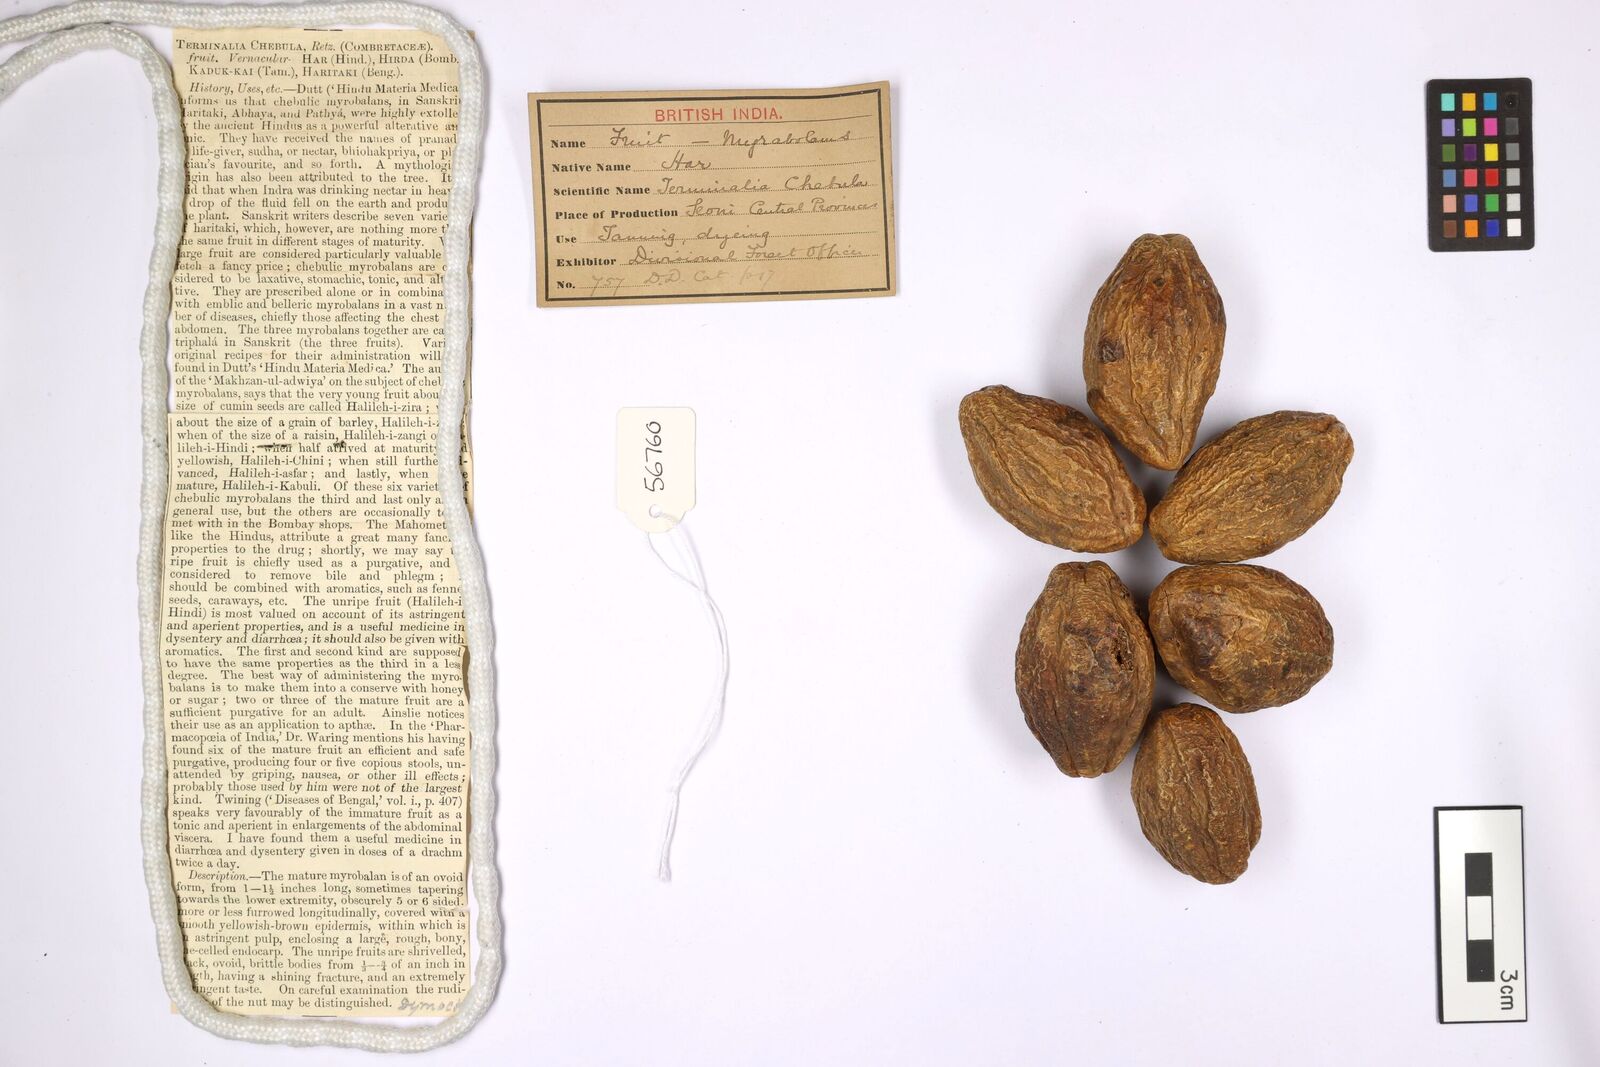 TERMINALIA CHEBULA, Retz. (COMBRETACEÆ).
fruit. Vernacular HAR (Hind.), HIRDA (Bomb.
KADUK-KAI (Tam.), HARITAKI (Beng.).
History, Uses, etc.—Dutt ('Hindu Materia Medica
nforms us that chebulic myrobalans, in Sanskri
Haritaki, Abhaya, and Pathyá, were highly extolle
y the ancient Hindus as a powerful alterative an
nic. They have received the names of pranad
life-giver, sudha, or nectar, bhishakpriya, or ph
cian's favourite, and so forth. A mythologi
igin has also been attributed to the tree. It
id that when Indra was drinking nectar in heav
drop of the fluid fell on the earth and produ
he plant. Sanskrit writers describe seven varie
f haritaki, which, however, are nothing more t
he same fruit in different stages of maturity.
arge fruit are considered particularly valuable
fetch a fancy price; chebulic myrobalans are c
sidered to be laxative, stomachic, tonic, and alt
tive. They are prescribed alone or in combina
with emblic and belleric myrobalans in a vast n
ber of diseases, chiefly those affecting the chest
abdomen. The three myrobalans together are ca
triphalá in Sanskrit (the three fruits). Vari
original recipes for their administration will
found in Dutt's 'Hindu Materia Medica.' The au
of the 'Makhzan-ul-adwiya' on the subject of che
myrobalans, says that the very young fruit abou
size of cumin seeds are called Halileh-i-zira;
about the size of a grain of barley, Halileh-i-
when of the size of a raisin, Halileh-i-zangi o
lileh-i-Hindi; when half arrived at maturity
yellowish, Halileh-i-Chini; when still furthe
vanced, Halileh-i-asfar; and lastly, when
mature, Halileh-i-Kabuli. Of these six variet
chebulic myrobalans the third and last only a
general use, but the others are occasionally t
met with in the Bombay shops. The Mahomet
like the Hindus, attribute a great many fanc
properties to the drug; shortly, we may say
ripe fruit is chiefly used as a purgative, and
considered to remove bile and phlegm;
should be combined with aromatics, such as fenne
seeds, caraways, etc. The unripe fruit (Halileh-i
Hindi) is most valued on account of its astringent
and aperient properties, and is a useful medicine in
dysentery and diarrhœa; it should also be given with
aromatics. The first and second kind are supposed
to have the same properties as the third in a less
degree. The best way of administering the myro-
balans is to make them into a conserve with honey
or sugar; two or three of the mature fruit are a
sufficient purgative for an adult. Ainslie notices
their use as an application to apthæ. In the 'Phar-
macopœia of India,' Dr. Waring mentions his having
found six of the mature fruit an efficient and safe
purgative, producing four or five copious stools, un-
attended by griping, nausea, or other ill effects;
probably those used by him were not of the largest
kind. Twining ('Diseases of Bengal,' vol. i., p. 407)
speaks very favourably of the immature fruit as a
tonic and aperient in enlargements of the abdominal
viscera. I have found them a useful medicine in
diarrhœa and dysentery given in doses of a drachm
twice a day.
Description.—The mature myrobalan is of an ovoid
form, from 1—1½ inches long, sometimes tapering
towards the lower extremity, obscurely 5 or 6 sided.
more or less furrowed longitudinally, covered with a
mooth yellowish-brown epidermis, within which is
n astringent pulp, enclosing a large, rough, bony,
ne-celled endocarp. The unripe fruits are shrivelled,
ack, ovoid, brittle bodies from ⅓—¾ of an inch in
gth, having a shining fracture, and an extremely
ingent taste. On careful examination the rudi-
of the nut may be distinguished. Dymock
BRITISH INDIA.
Name Fruit — Myrabolams
Native Name Har
Scientific Name Terminalia Chebula
Place of Production Seoni Central Provinces
Use Tanning, dyeing
Exhibitor Divisional Forest Officer
No. 757 D.D. Cat
56760
3cm